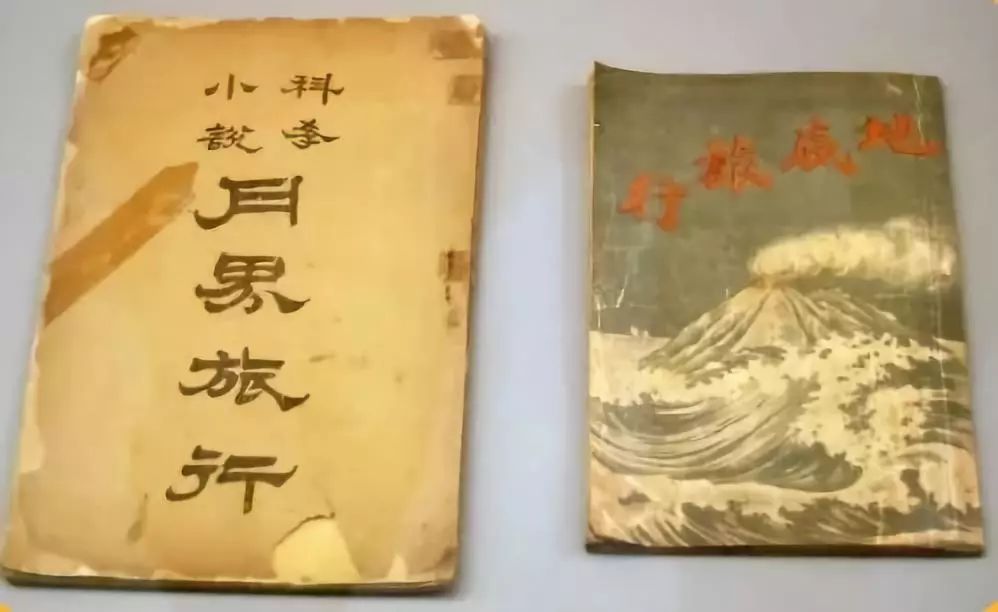 科学
小說
月界旅行
地底旅行